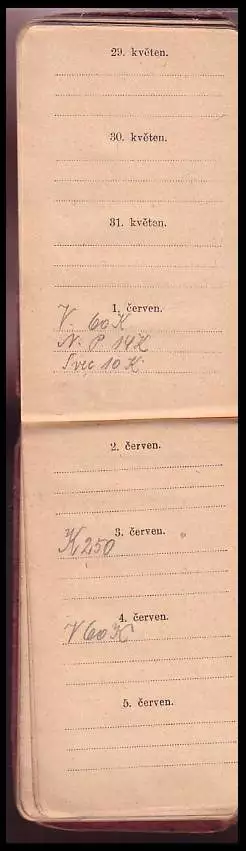 29. květen.
30. květen.
31. květen.
1. červen.
V. 60 K
N. P. 14 K
Švec 10 K.
2. červen.
3. červen.
K 250
4. červen.
V 60 K
5. červen.